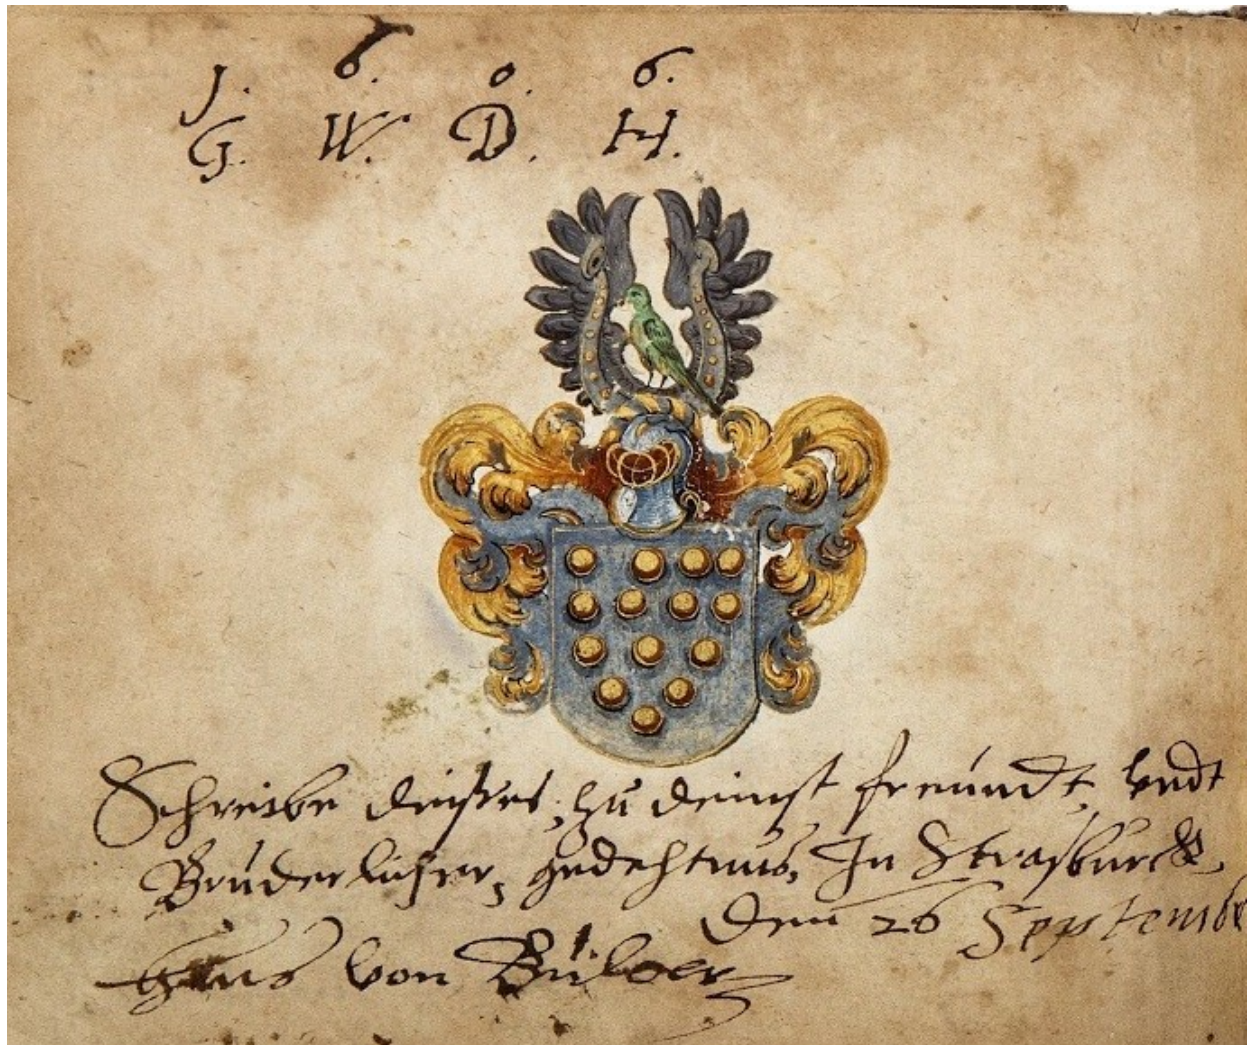 1. 6. 0. 6.
G. W. D. H.
Schreibe dießes, zu deinst freundt, vndt
Brüderlicher, gedehtnus, In Strasburck,
den 26 Septemb
Hans von Bülow